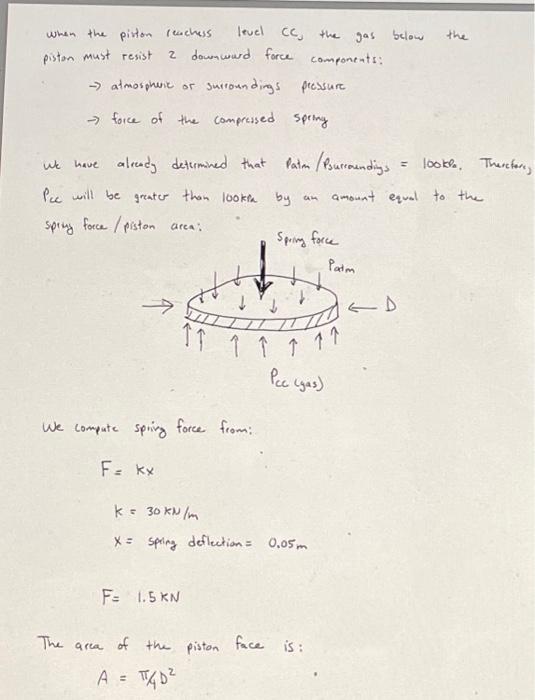 when the piston reachess level CC, the gas below the
piston must resist 2 downward force components:
→ atmospheric or surroundings pressure
→ force of the compressed spring
We have already determined that Patm/Psurroundings = 100kPa. Therefore,
Pcc will be greater than 100kPa by an amount equal to the
spring force / piston area:
Spring force
Patm
D
Pcc (gas)
We compute spring force from:
F = kx
k = 30 KN/m
x = spring deflection = 0.05m
F = 1.5 KN
The area of the piston face is:
A = π/4 D²